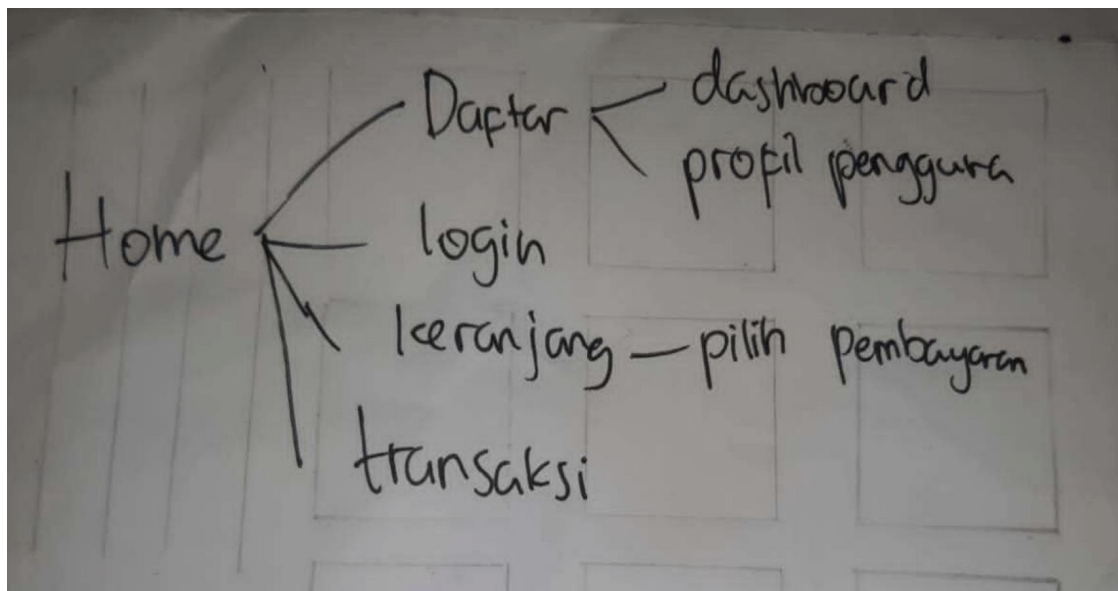 Daftar
dashboard
profil pengguna
Home
login
keranjang — pilih pembayaran
transaksi